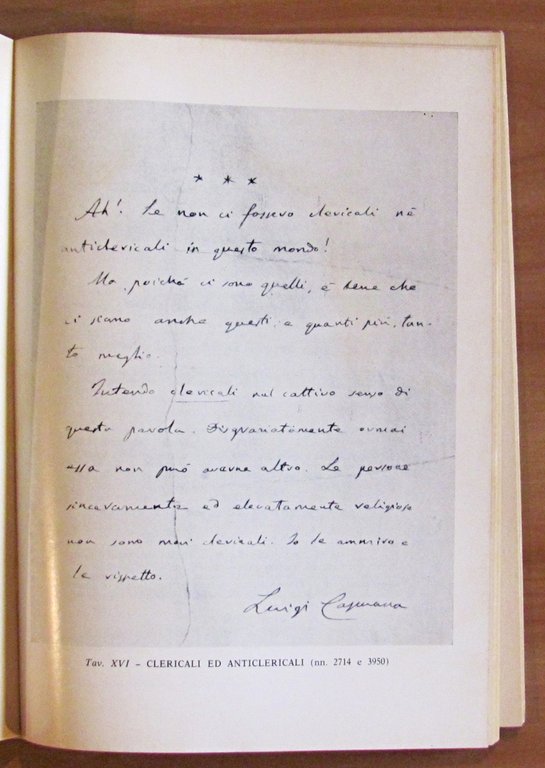 * * *
Ah! Se non ci fossero clericali nè
anticlericali in questo mondo!
Ma, poichè ci sono quelli, è bene che
ci siano anche questi, e quanti più, tan-
to meglio.
Intendo clericali nel cattivo senso di
questa parola. Disgraziatamente ormai
essa non può averne altro. Le persone
sinceramente ed elevatamente religiose
non sono mai clericali. Io le ammiro e
le rispetto.
Luigi Capuana
Tav. XVI – CLERICALI ED ANTICLERICALI (nn. 2714 e 3950)